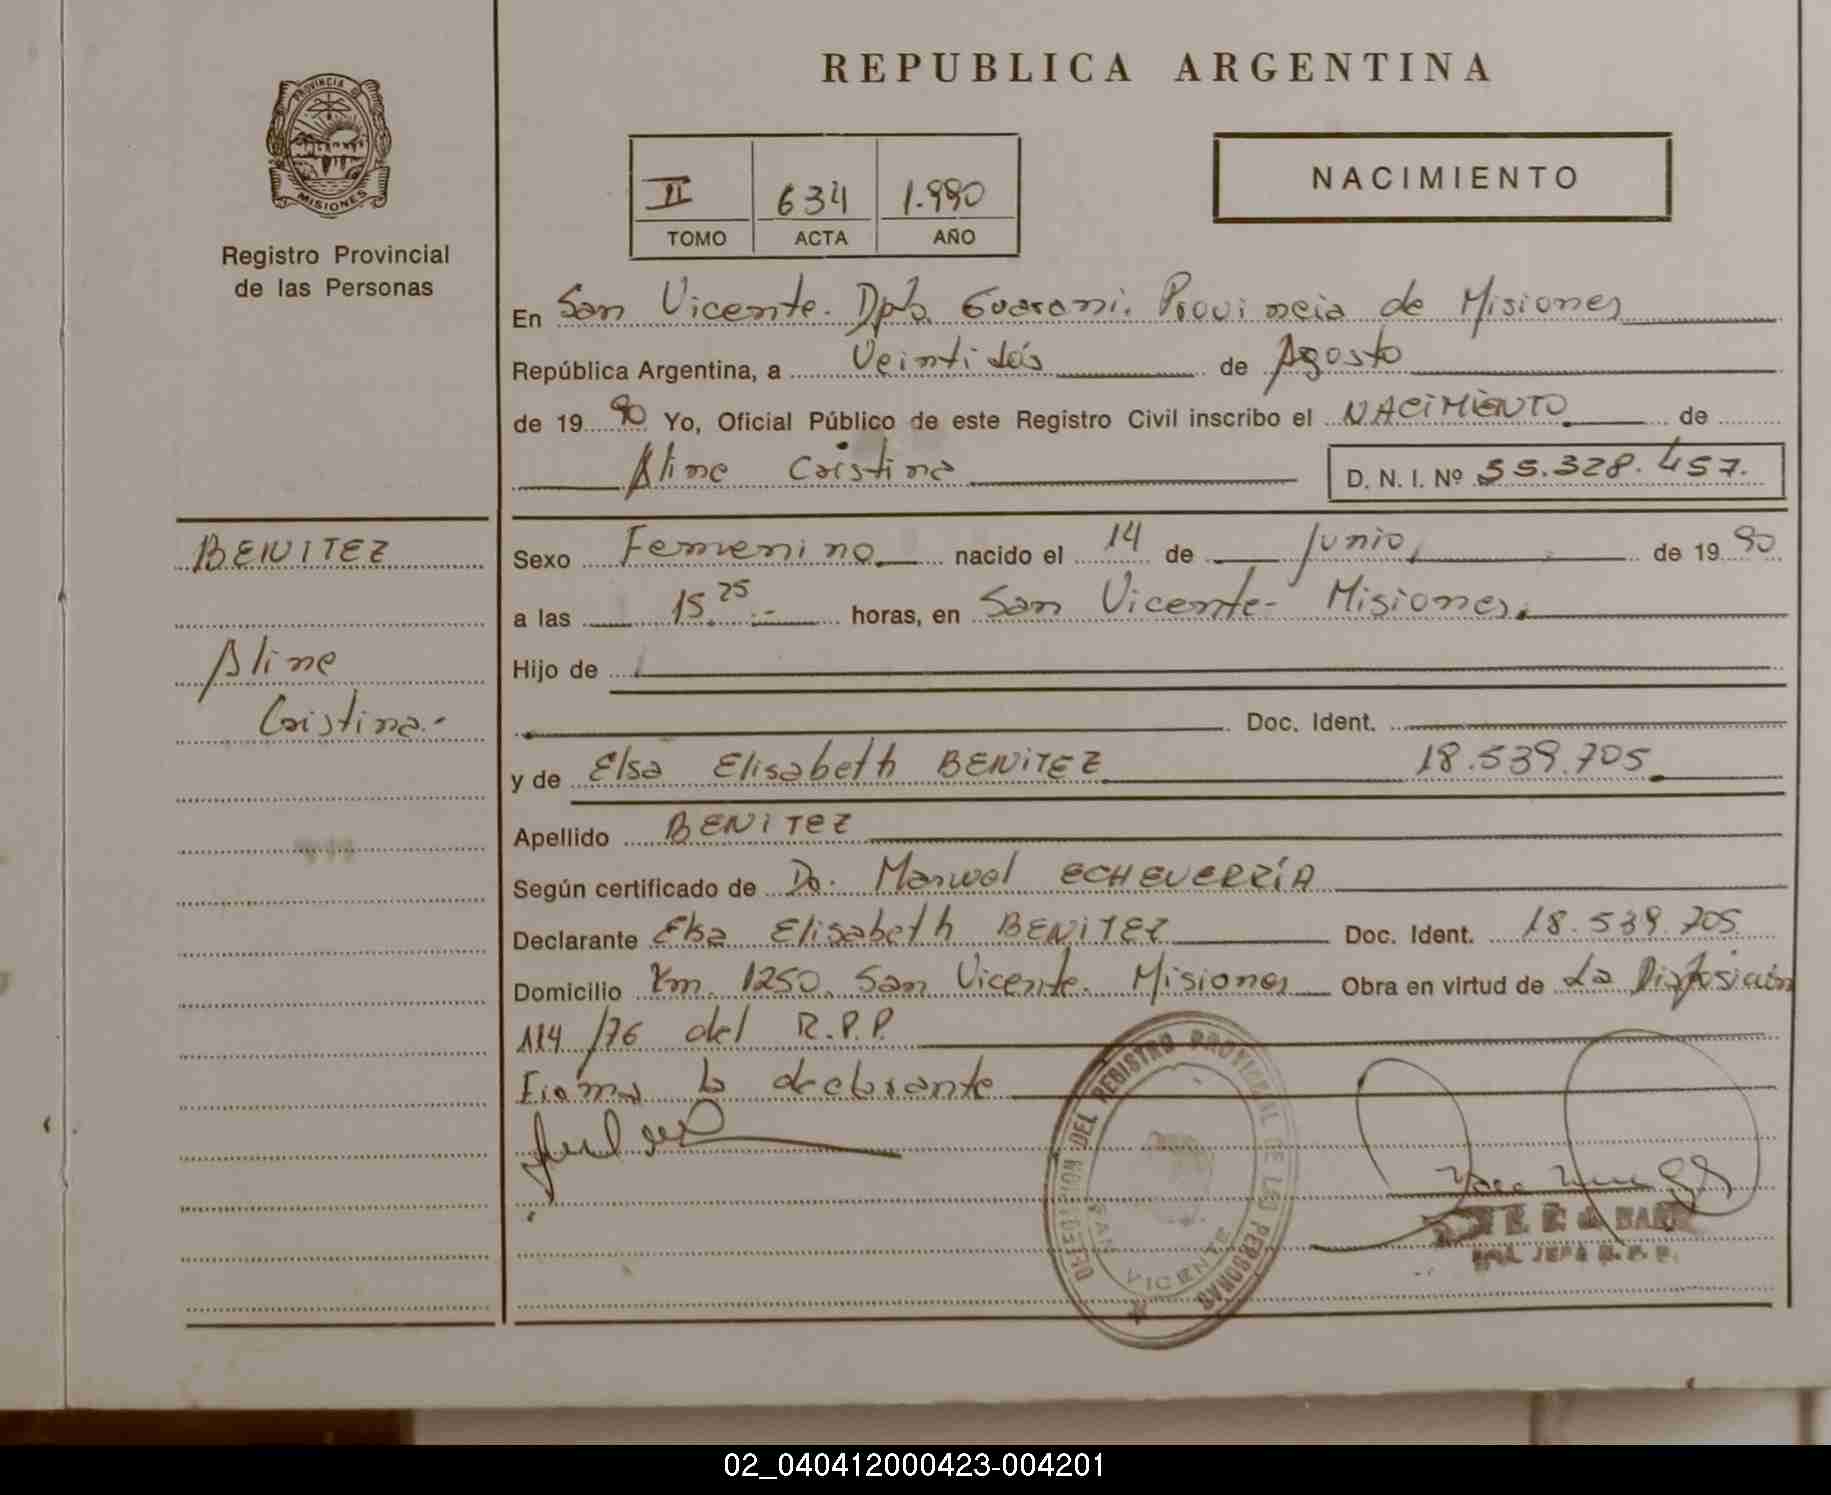 REPUBLICA ARGENTINA
PROVINCIA DE
MISIONES
Registro Provincial
de las Personas
II 634 1.990
TOMO ACTA AÑO
NACIMIENTO
En San Vicente. Dpto. Guarani. Provincia de Misiones
República Argentina, a Veintidós de Agosto
de 19 90 Yo, Oficial Público de este Registro Civil inscribo el NACIMIENTO de
Aline Cristina D. N. I. Nº 35.328.457.
BENITEZ
Aline
Cristina.-
Sexo Femenino nacido el 14 de Junio, de 19 90
a las 15.25.- horas, en San Vicente- Misiones.
Hijo de
Doc. Ident.
y de Elsa Elisabeth BENITEZ 18.539.705
Apellido BENITEZ
Según certificado de Dr. Manuel ECHEVERRÍA
Declarante Elsa Elisabeth BENITEZ Doc. Ident. 18.539.705
Domicilio Km. 1250. San Vicente. Misiones Obra en virtud de La Disposición
114/76 del R.P.P.
Firma la declarante
DELEGACION DEL REGISTRO PROVINCIAL DE LAS PERSONAS
SAN VICENTE
02_040412000423-004201